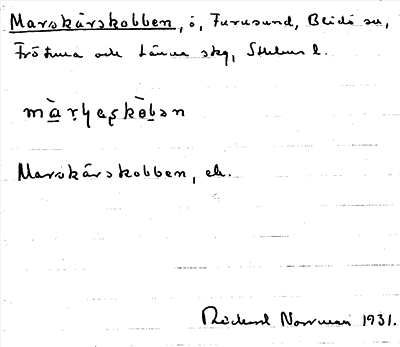 Marskärskobben, ö, Furusund, Blidö sn,
Frötuna och Länna skg, Sthlms l.
Marskärskobben, ek.
Rickard Norrman 1931.